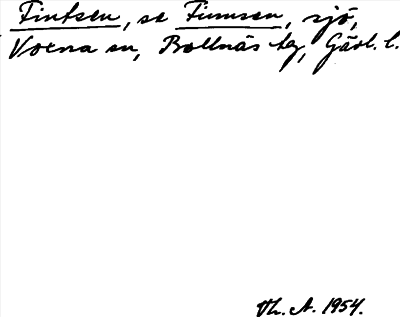 Fintsen, se Finnsen, sjö,
Voxna sn, Bollnäs tg, Gävl. l.
Vh. A. 1954.